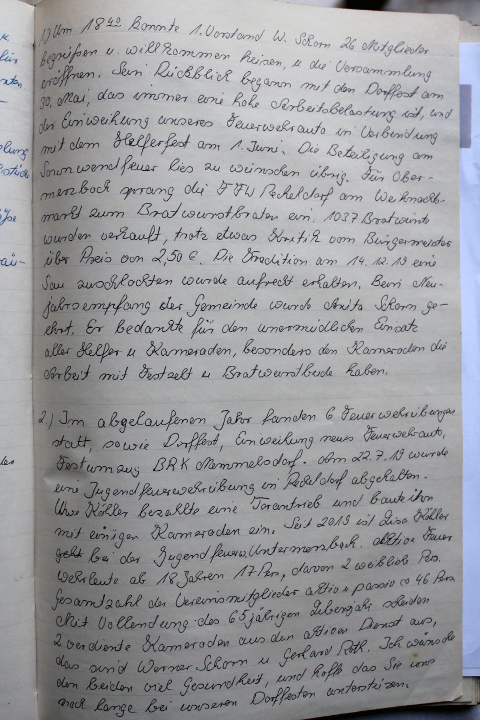 1) Um 18⁴⁰ konnte 1. Vorstand W. Schorn 26 Mitglieder
begrüßen u. willkommen heisen, u die Versammlung
eröffnen. Sein Rückblick begann mit den Dorffest am
30. Mai, das immer eine hohe Arbeitsbelastung ist, und
der Einweihung unseres Feuerwehrauto in Verbindung
mit dem Helferfest am 1. Juni. Die Beteiligung am
Sonnwendfeuer lies zu wünschen übrig. Für Ober-
merzbach sprang die FFW Recheldorf am Weihnachts-
markt zum Bratwurstbraten ein. 1037 Bratwürste
wurden verkauft, trotz etwas Kritik vom Bürgermeister
über Preis von 2,50 €. Die Tradition am 14.12.19 eine
Sau zuschlachten wurde aufrecht erhalten. Beim Neu-
jahrsempfang der Gemeinde wurde Anita Schorn ge-
ehrt. Er bedankte für den unermüdlichen Einsatz
aller Helfer u Kameraden, besonders den Kameraden die
Arbeit mit Festzelt u Bratwurstbude haben.
2.) Im abgelaufenen Jahr fanden 6 Feuerwehrübungen
statt, sowie Dorffest, Einweihung neues Feuerwehrauto,
Festumzug BRK Memmelsdorf. Am 22.7.19 wurde
eine Jugendfeuerwehrübung in Recheldorf abgehalten.
Uwe Köhler bezahlte eine Torantrieb und baute ihn
mit einigen Kameraden ein. Seit 2019 ist Lisa Köhler
geht bei der Jugendfeuerw. Untermerzbach. Aktive Feuer
wehrleute ab 18 Jahren 17 Per, davon 2 weiblich Pers.
Gesamtzahl der Vereinsmitglieder aktiv u passiv ca 46 Pers
Mit Vollendung des 65 jährigen Lebenjahr scheiden
2 verdiente Kameraden aus den aktiven Dienst aus,
das sind Werner Schorn u Gerhard Roth. Ich wünsche
den beiden viel Gesundheit, und hoffe das Sie uns
noch lange bei unseren Dorffesten unterstüzen.